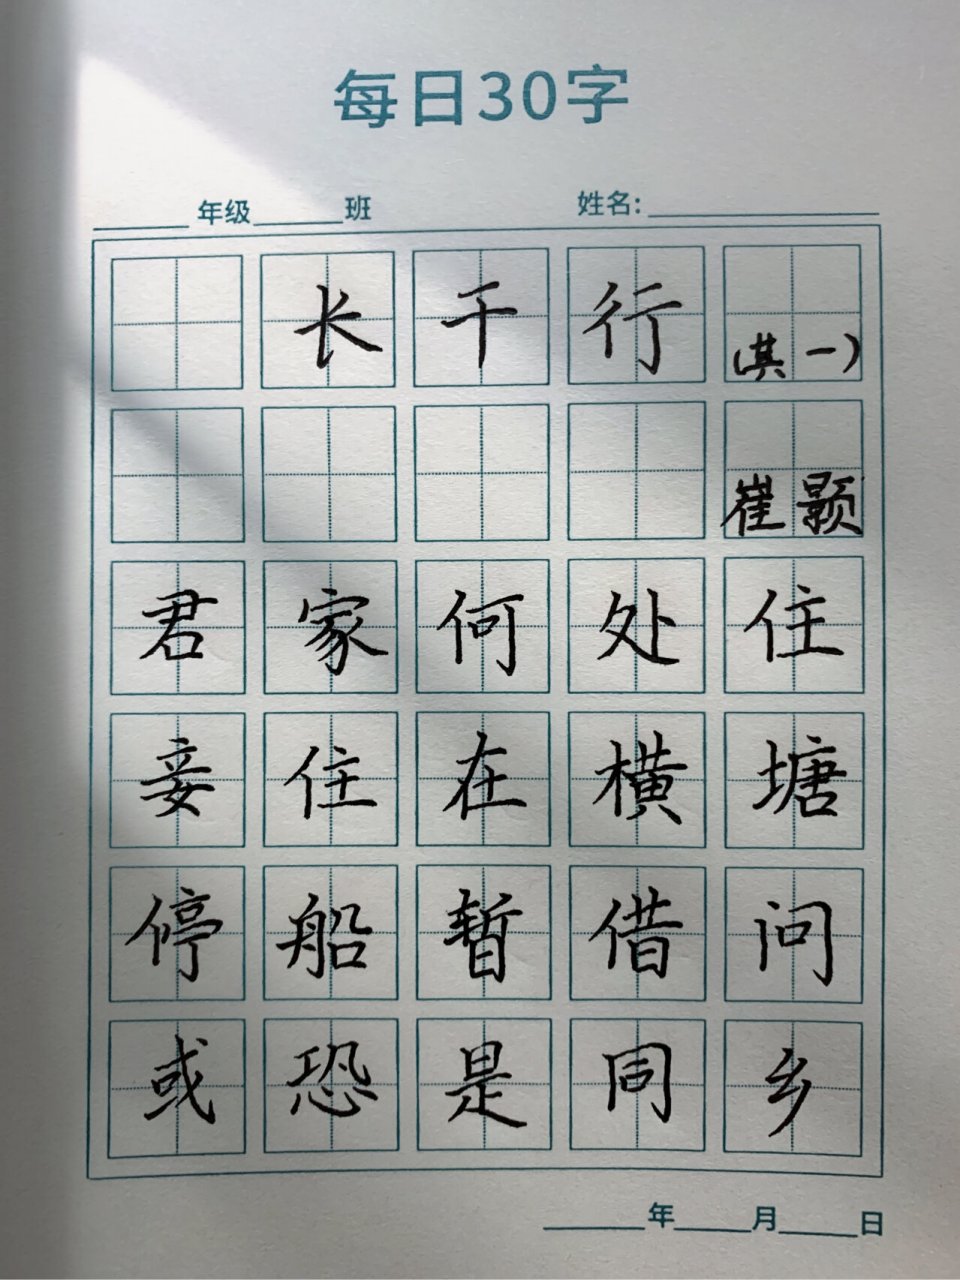 每日30字
____年级____班 姓名:________
长干行(其一)
崔颢
君家何处住
妾住在横塘
停船暂借问
或恐是同乡
____年____月____日